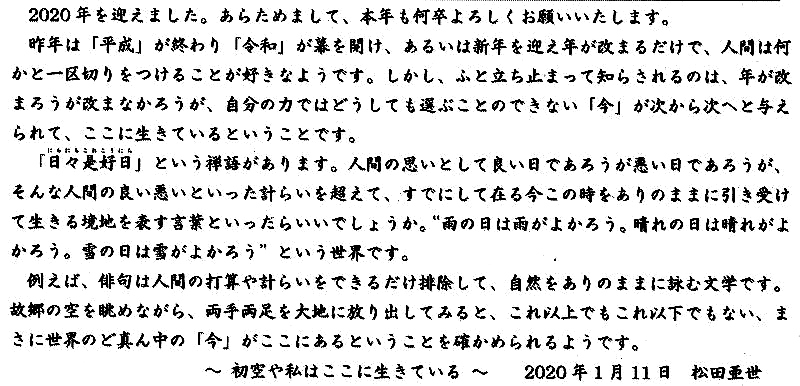 2020年を迎えました。あらためまして、本年も何卒よろしくお願いいたします。
昨年は「平成」が終わり「令和」が幕を開け、あるいは新年を迎え年が改まるだけで、人間は何
かと一区切りをつけることが好きなようです。しかし、ふと立ち止まって知らされるのは、年が改
まろうが改まなかろうが、自分の力ではどうしても選ぶことのできない「今」が次から次へと与え
られて、ここに生きているということです。
にちにちこれこうにち
「日々是好日」という禅語があります。人間の思いとして良い日であろうが悪い日であろうが、
そんな人間の良い悪いといった計らいを超えて、すでにして在る今この時をありのままに引き受け
て生きる境地を表す言葉といったらいいでしょうか。“雨の日は雨がよかろう。晴れの日は晴れがよ
かろう。雪の日は雪がよかろう”という世界です。
例えば、俳句は人間の打算や計らいをできるだけ排除して、自然をありのままに詠む文学です。
故郷の空を眺めながら、両手両足を大地に放り出してみると、これ以上でもこれ以下でもない、ま
さに世界のど真ん中の「今」がここにあるということを確かめられるようです。
～ 初空や私はここに生きている ～ 2020年1月11日 松田亜世